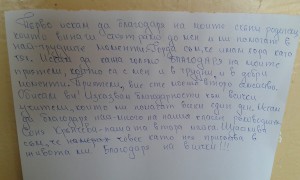 Първо искам да благодаря на моите скъпи родители,
които винаги са до мен и ми помагат в
най-трудните моменти. Горда съм, че имам хора като
тях. Искам да кажа голямо благодаря на моите
приятели, които са с мен и в трудни, и в добри
моменти. Приятели, вие сте моето второ семейство.
Искам да изкажа благодарности към всички
учители, които ми помагат всеки един ден. Искам
да благодаря най-много на нашия класен ръководител
Кръстева-нашата втора майка. Щастлива
съм, че човек като нея присъства в
живота ми. Благодаря на всички!!!